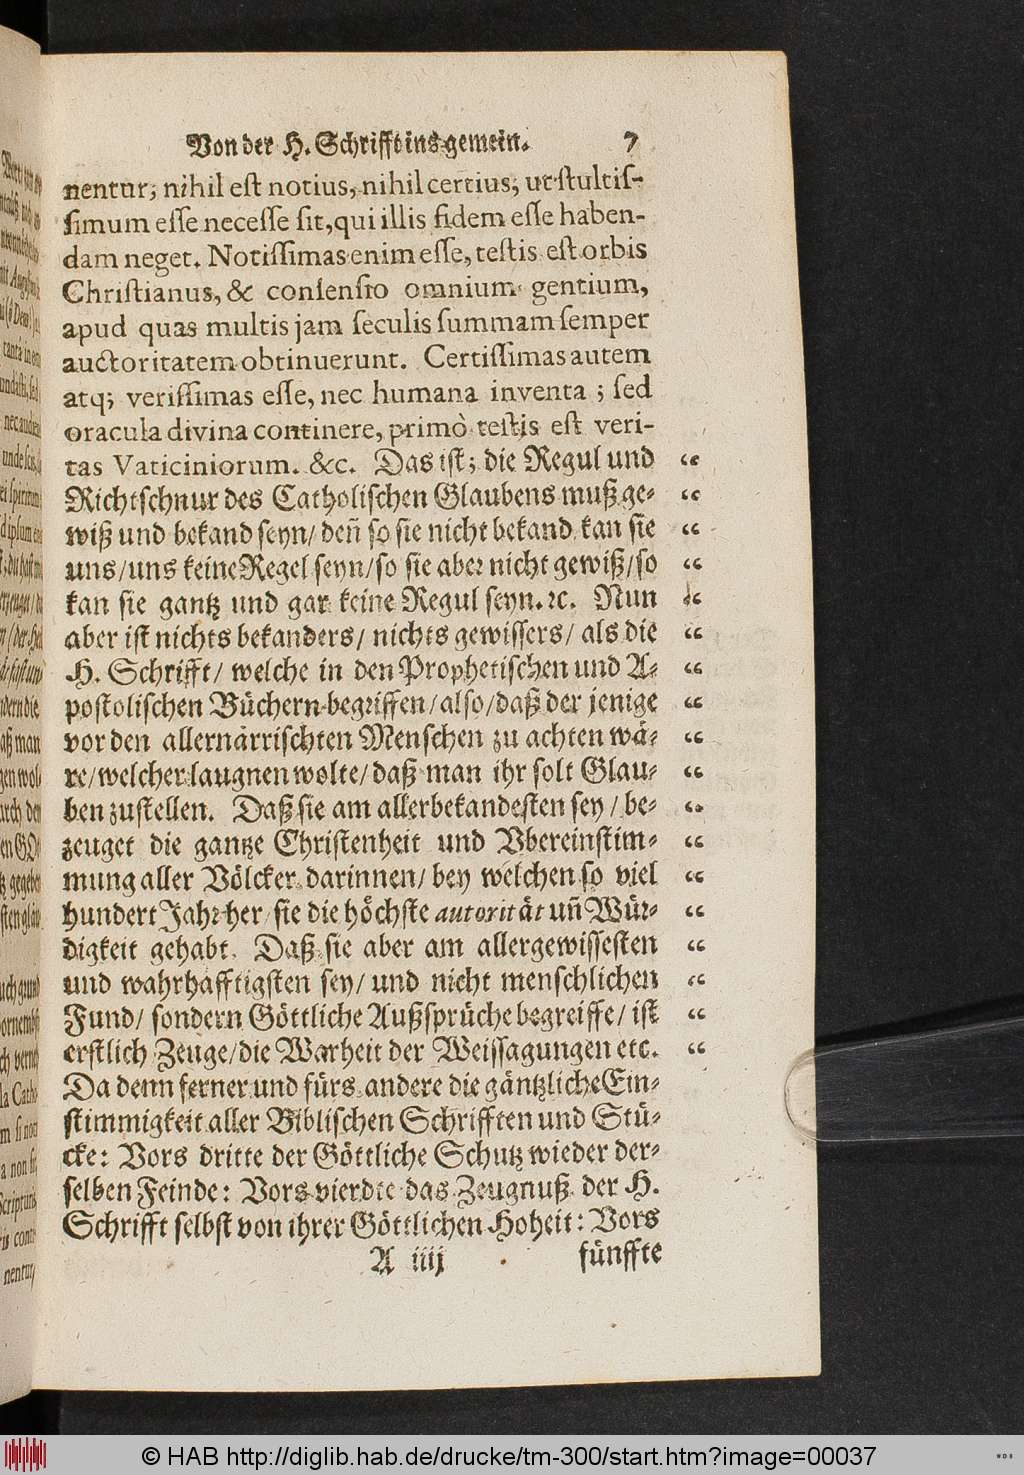 Von der H. Schrifft ins gemein. 7
nentur; nihil est notius, nihil certius; ut stultis-
simum esse necesse sit, qui illis fidem esse haben-
dam neget. Notissimas enim esse, testis est orbis
Christianus, & consensio omnium gentium,
apud quas multis jam seculis summam semper
auctoritatem obtinuerunt. Certissimas autem
atq; verissimas esse, nec humana inventa; sed
oracula divina continere, primò testis est veri-
tas Vaticiniorum. &c. Das ist; die Regul und “
Richtschnur des Catholischen Glaubens muß ge- “
wiß und bekand seyn/ deñ so sie nicht bekand kan sie “
uns/uns keine Regel seyn/so sie aber nicht gewiß/so “
kan sie gantz und gar keine Regul seyn. ꝛc. Nun “
aber ist nichts bekanders/ nichts gewissers/ als die “
H. Schrifft/ welche in den Prophetischen und A- “
postolischen Büchern begriffen/also/daß der jenige “
vor den allernärrischten Menschen zu achten wä- “
re/welcher laugnen wolte/daß man ihr solt Glau- “
ben zustellen. Daß sie am allerbekandesten sey/ be- “
zeuget die gantze Christenheit und Vbereinstim- “
mung aller Völcker darinnen/ bey welchen so viel “
hundert Jahr her/ sie die höchste autorität uñ Wür- “
digkeit gehabt. Daß sie aber am allergewissesten “
und wahrhafftigsten sey/ und nicht menschlichen “
Fund/ sondern Göttliche Außsprüche begreiffe/ ist “
erstlich Zeuge/die Warheit der Weissagungen etc. “
Da denn ferner und fürs andere die gäntzliche Ein-
stimmigkeit aller Biblischen Schrifften und Stü-
cke: Vors dritte der Göttliche Schutz wieder der-
selben Feinde: Vors vierdte das Zeugnuß der H.
Schrifft selbst von ihrer Göttlichen Hoheit: Vors
A iiij fünffte
© HAB http://diglib.hab.de/drucke/tm-300/start.htm?image=00037